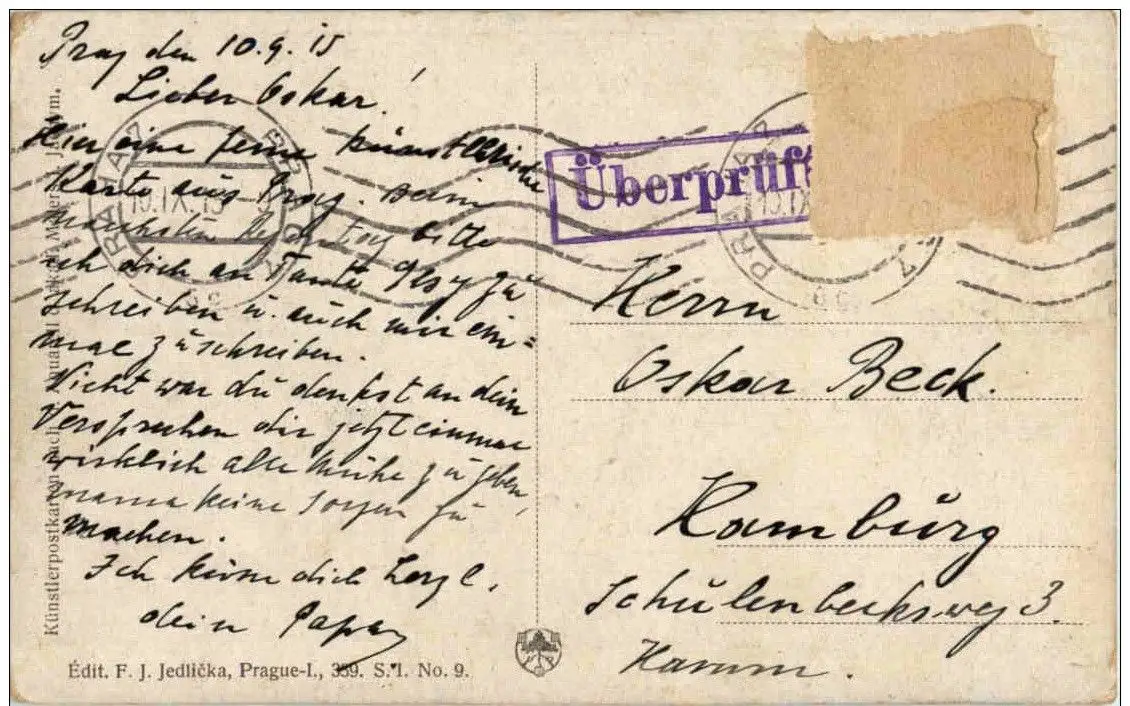 Prag den 10.9.15
Lieber Oskar!
Hier eine feine künstlerische
Karte aus Prag.
bitte
ich dich an Tante zu
schreiben u. auch mir ein=
mal zu schreiben.
Nicht war du denkst an dein
Versprechen dir jetzt einmal
wirklich alle Mühe zu geben,
mama keine Sorgen zu
machen.
Ich küsse dich herzl.
dein Papa
Édit. F. J. Jedlička, Prague-I., 359. S. I. No. 9.
Künstlerpostkarten nach
Überprüft
Herrn
Oskar Beck.
Hamburg
Schulenbecksweg 3
Hamm.